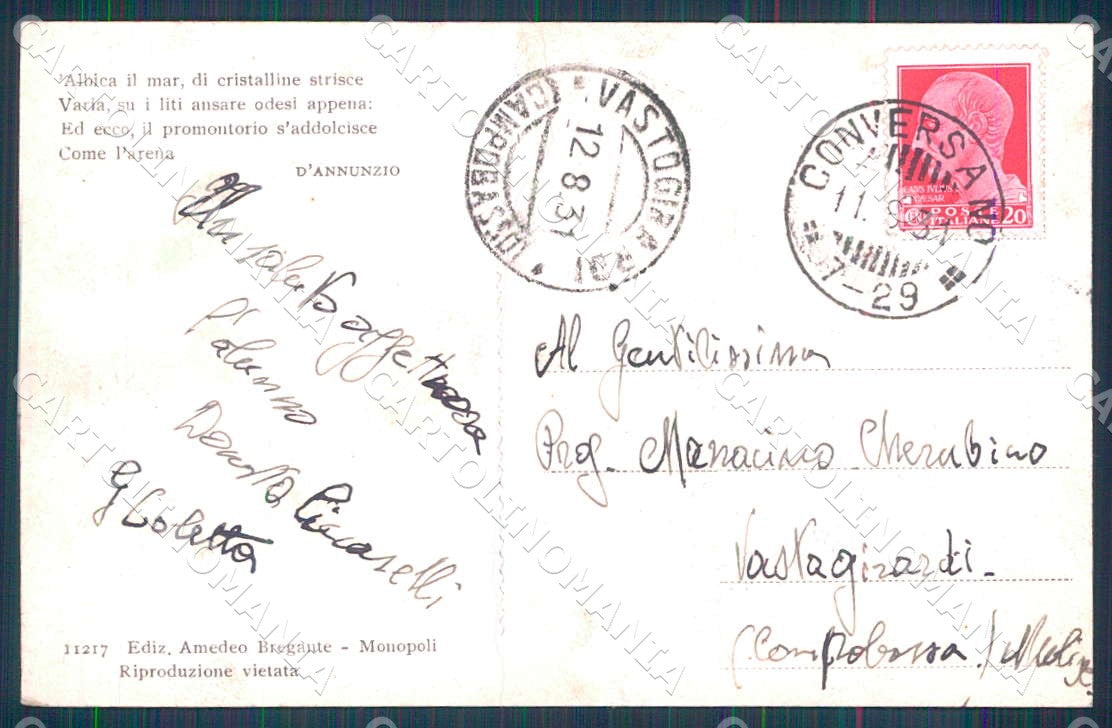 Albica il mar, di cristalline strisce
Varia, su i liti ansare odesi appena:
Ed ecco, il promontorio s'addolcisce
Come l'arena
D'ANNUNZIO
VASTOGIRARDI
(CAMPOBASSO)
12.8.31
CONVERSANO
11.8.31
17-29
CAIUS IVLIVS
CAESAR
CENT. 20
POSTE
ITALIANE
affettuosa
l'alunno
Donato
G Coletta
Al Gentilissimo
Prog. Manacino Cherubino
Vastagirardi.
(Compobassa) Molise
11217 Ediz. Amedeo Bregante - Monopoli
Riproduzione vietata
CARTOLINOMANIA